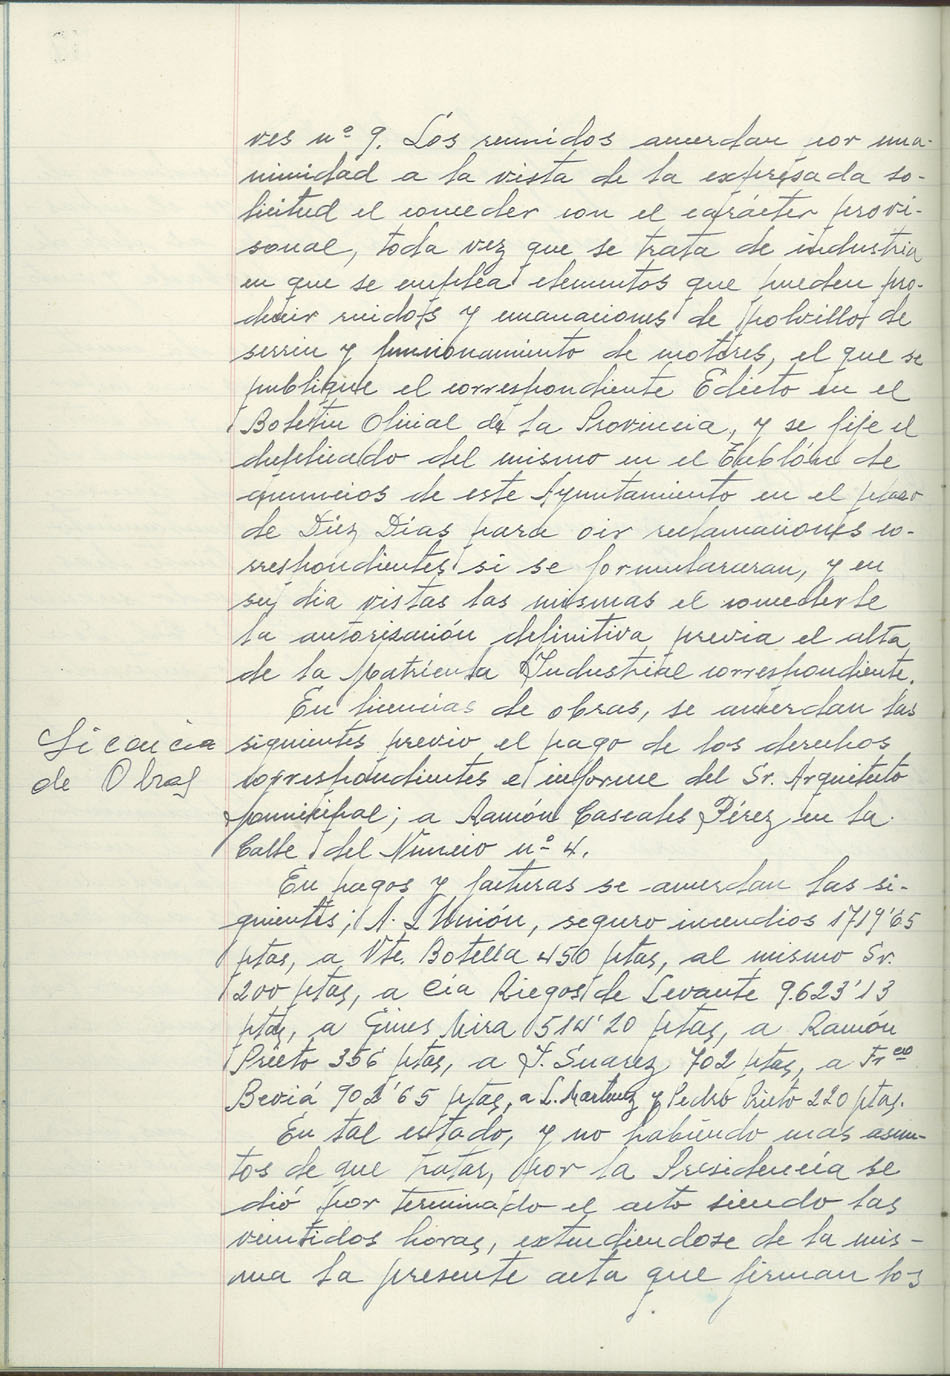 ves nº 9. Los reunidos acuerdan por una-
nimidad a la vista de la expresada so-
licitud el conceder con el carácter provi-
sonal, toda vez que se trata de industria
en que se emplea elementos que pueden pro-
ducir ruidos y emanaciones de polvillo de
serrin y funcionamiento de motores, el que se
publique el correspondiente Edicto en el
Boletin Oficial de la Provincia, y se fije el
duplicado del mismo en el Tablón de
anuncios de este Ayuntamiento en el plazo
de Diez Dias para oir reclamaciones co-
rrespondientes si se formularan, y en
su dia vistas las mismas el concederle
la autorización definitiva previa el alta
de la Matricula Industrial correspondiente.
En licencias de obras, se acuerdan las
Licencia
de Obras
siguientes previo el pago de los derechos
correspondientes e informe del Sr. Arquitecto
municipal; a Ramón Cascales Pérez en la
Calle del Nuncio nº 4.
En pagos y facturas se acuerdan las si-
guientes; A. L'Unión, seguro incendios 1719'65
ptas, a Vte. Botella 450 ptas, al mismo Sr.
200 ptas, a Cia Riegos de Levante 9.623'13
ptas, a Gines Mira 514'20 ptas, a Ramón
Prieto 356 ptas, a J. Suarez 702 ptas, a Frco
Beviá 902'65 ptas, a L. Martinez y Pedro Prieto 220 ptas.
En tal estado, y no habiendo mas asun-
tos de que tratar, por la Presidencia se
dió por terminado el acto siendo las
veintidos horas, extendiendose de la mis-
ma la presente acta que firman los